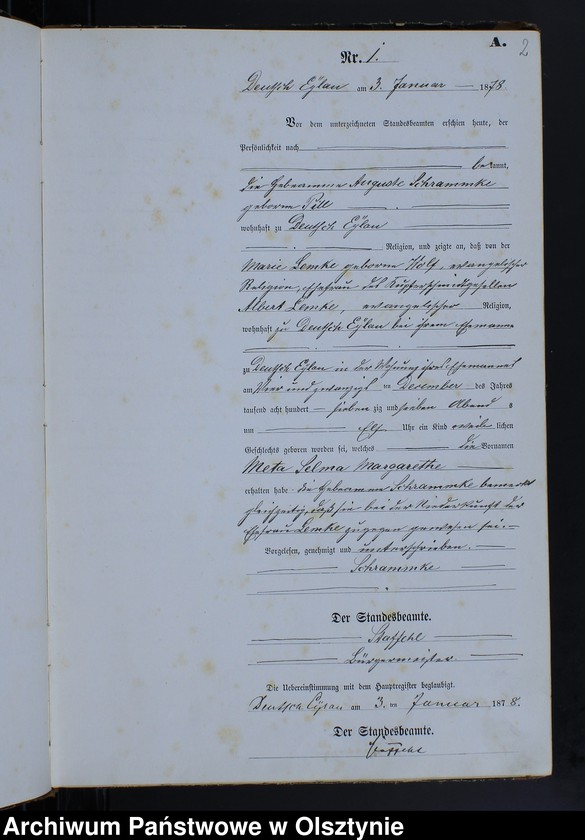 A. 2
Nr. 1.
Deutsch Eylau am 3. Januar 1878.
Vor dem unterzeichneten Standesbeamten erschien heute, der
Persönlichkeit nach
bekannt,
die Hebeamme Auguste Schrammke
geborne Pill
wohnhaft zu Deutsch Eylau
Religion, und zeigte an, daß von der
Marie Lemke geborne Wolf, evangelischer
Religion, Ehefrau des Kupferschmidgesellen
Albert Lemke, evangelischer Religion,
wohnhaft zu Deutsch Eylau bei ihrem Ehemanne
zu Deutsch Eylau in der Wohnung ihres Ehemannes
am Vier und zwanzigst en December des Jahres
tausend acht hundert sieben zig und sieben Abend s
um Elf Uhr ein Kind weib lichen
Geschlechts geboren worden sei, welches die Vornamen
Meta Selma Margarethe
erhalten habe. die Hebeamme Schrammke bemerkt
gleichzeitig, daß sie bei der Niederkunft der
Ehefrau Lemke zugegen gewesen sei.
Vorgelesen, genehmigt und unterschrieben.
Schrammke
Der Standesbeamte.
Bürgermeister
Die Uebereinstimmung mit dem Hauptregister beglaubigt.
Deutsch Eylau am 3. ten Januar 1878.
Der Standesbeamte.
Archiwum Państwowe w Olsztynie